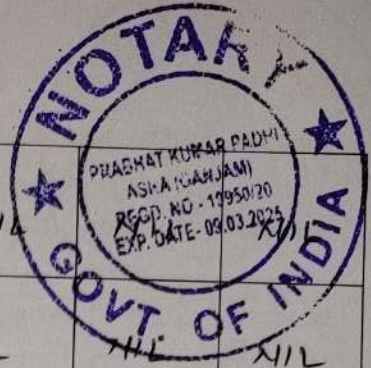 NOTARY
PRABHAT KUMAR PADHI
ASKA (GANJAM)
REGD. NO - 19950/20
EXP. DATE - 09.03.2025
GOVT. OF INDIA
NIL
NIL NIL